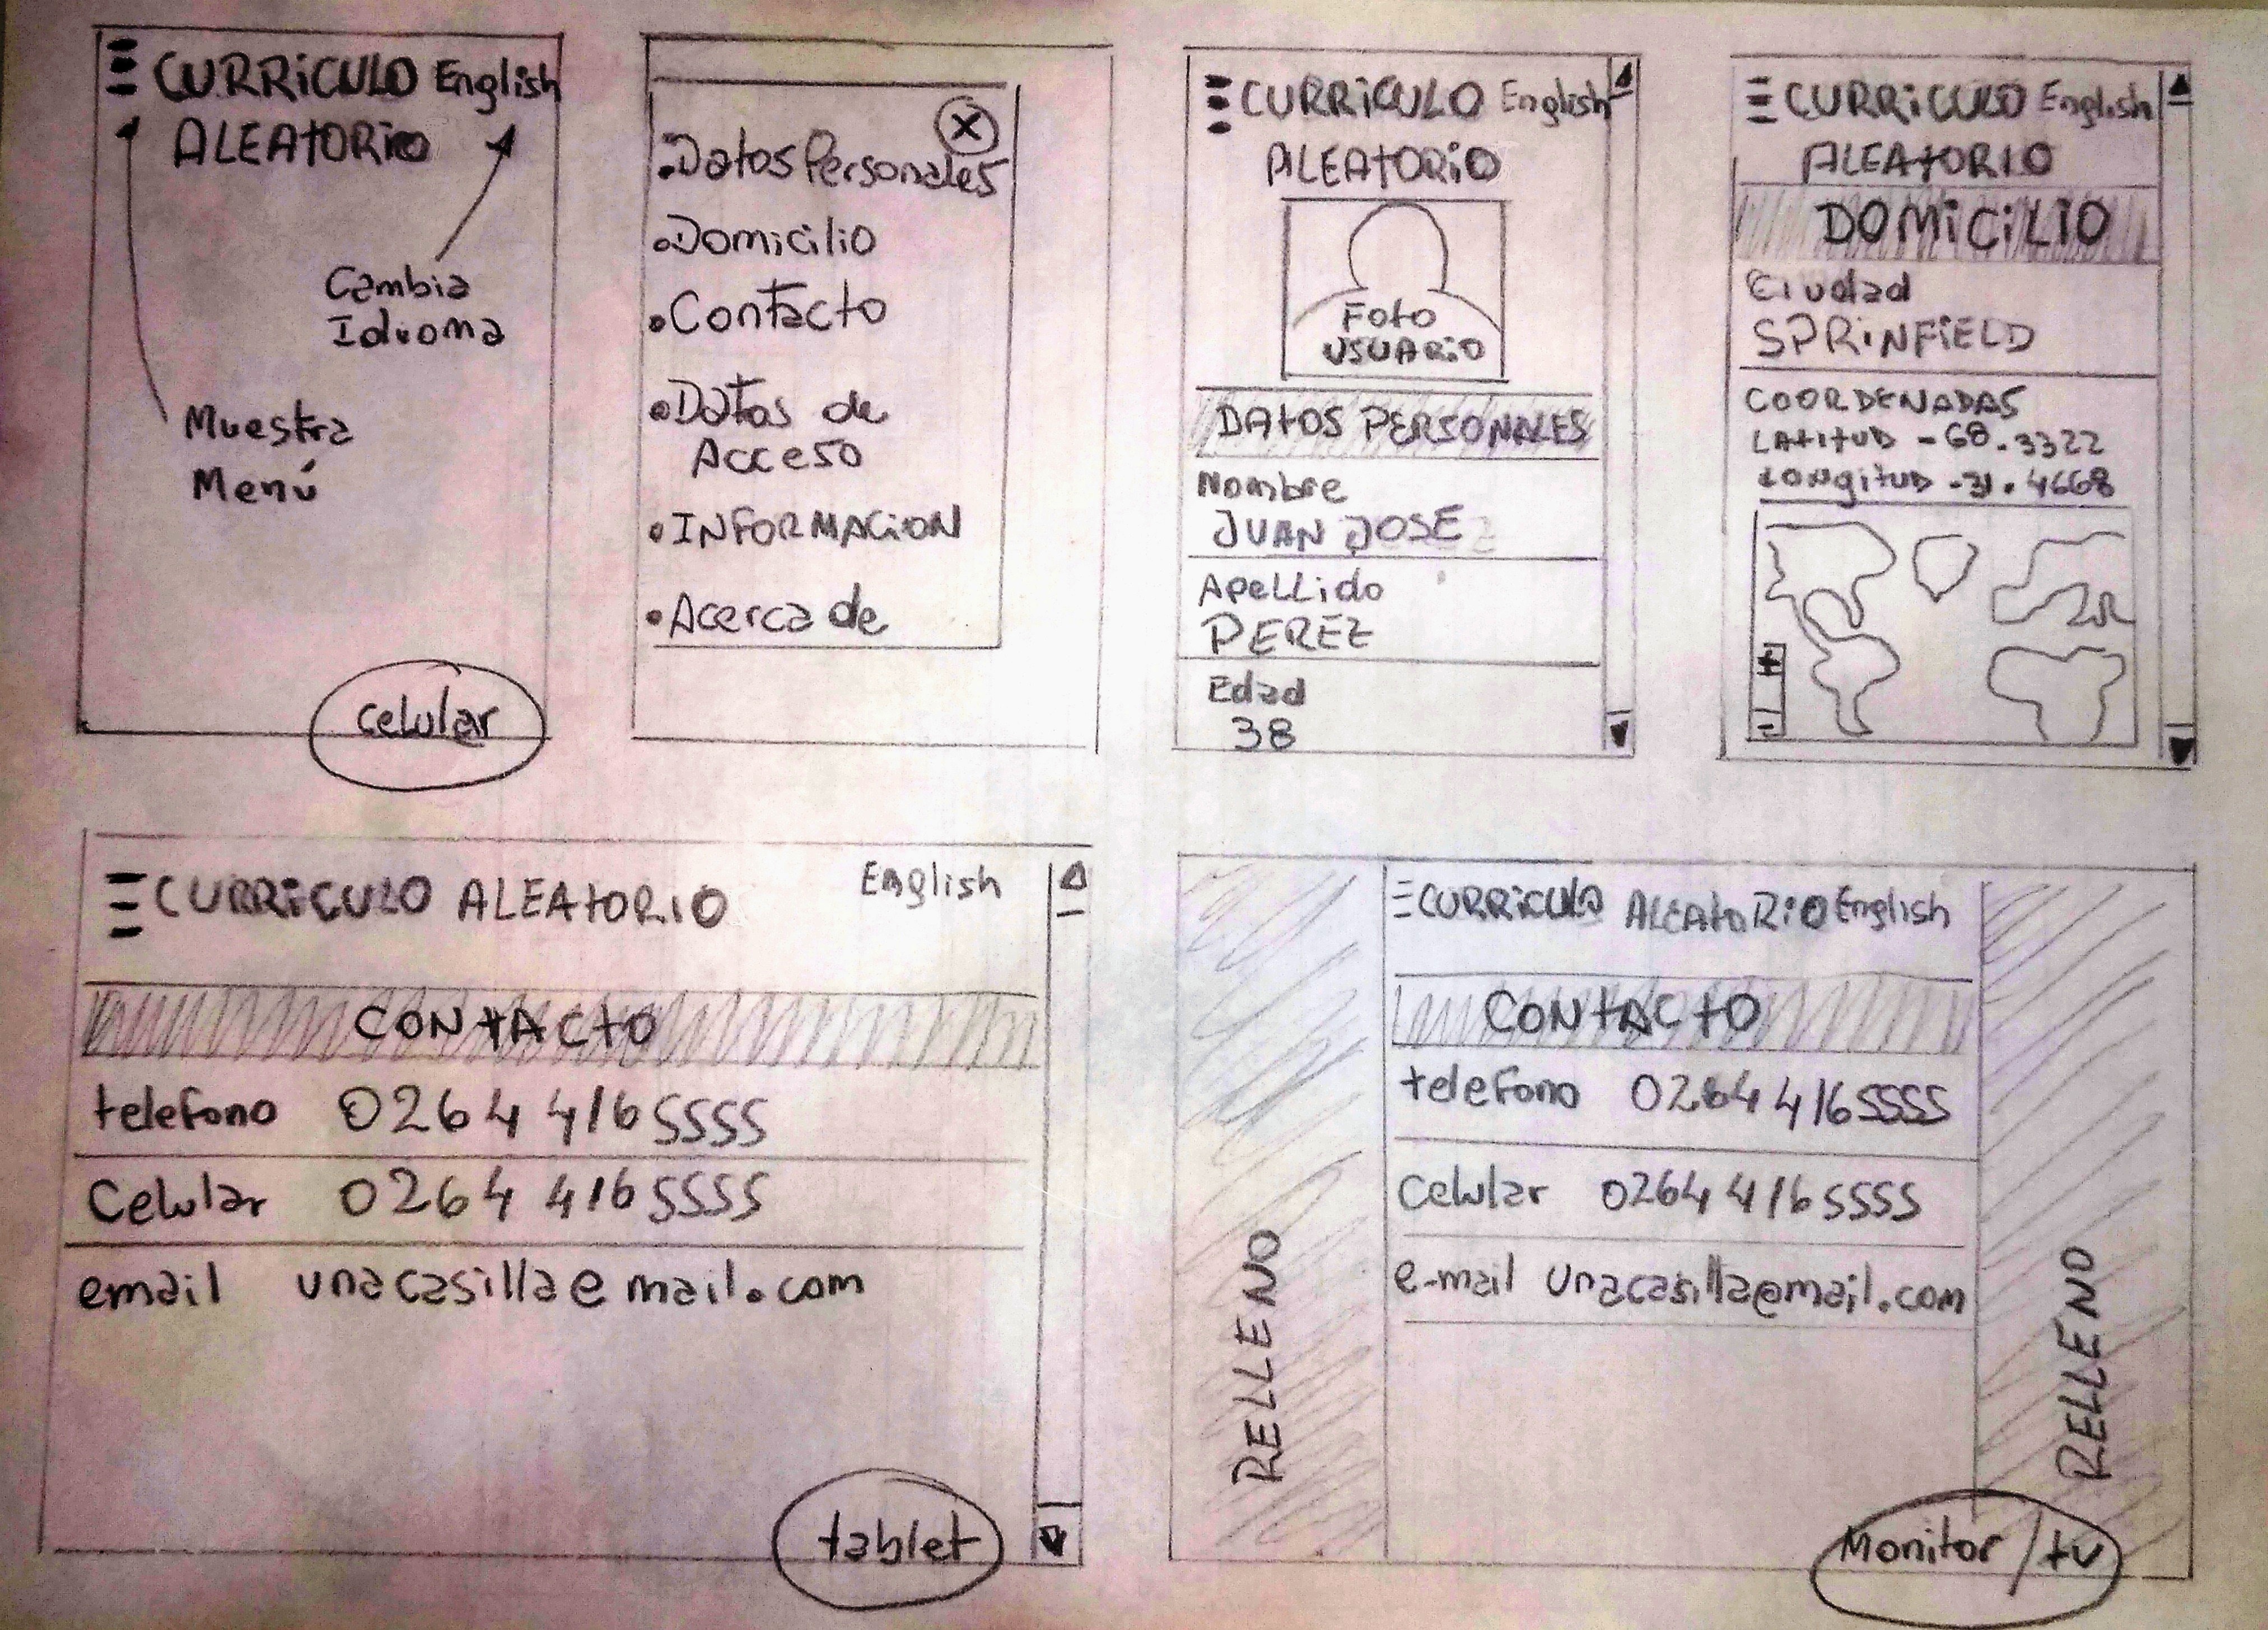 CURRiCULO English
ALEAtORiO
Cambia
Idioma
Muestra
Menú
celular
X
Datos Personales
Domicilio
Contacto
Datos de
Acceso
INFORMACiON
Acerca de
CURRiCULO English
ALEAtORiO
Foto
USUARiO
DAtOS PERSONALES
Nombre
JUAN JOSE
Apellido
PEREZ
Edad
38
CURRiCULO English
ALEAtORIO
DOMiCiLIO
Ciudad
SPRiNFiELD
COORDENADAS
LAtitUD -68.3322
Longitud -31.4668
+
-
CURRiCULO ALEAtORIO English
CONtACtO
telefono 0264 4165555
Celular 0264 4165555
email unacasilla@mail.com
tablet
CURRiCULO ALEAtoRiO English
CONtACtO
telefono 0264 4165555
Celular 0264 4165555
e-mail unacasilla@mail.com
RELLENO
RELLENO
Monitor/tv